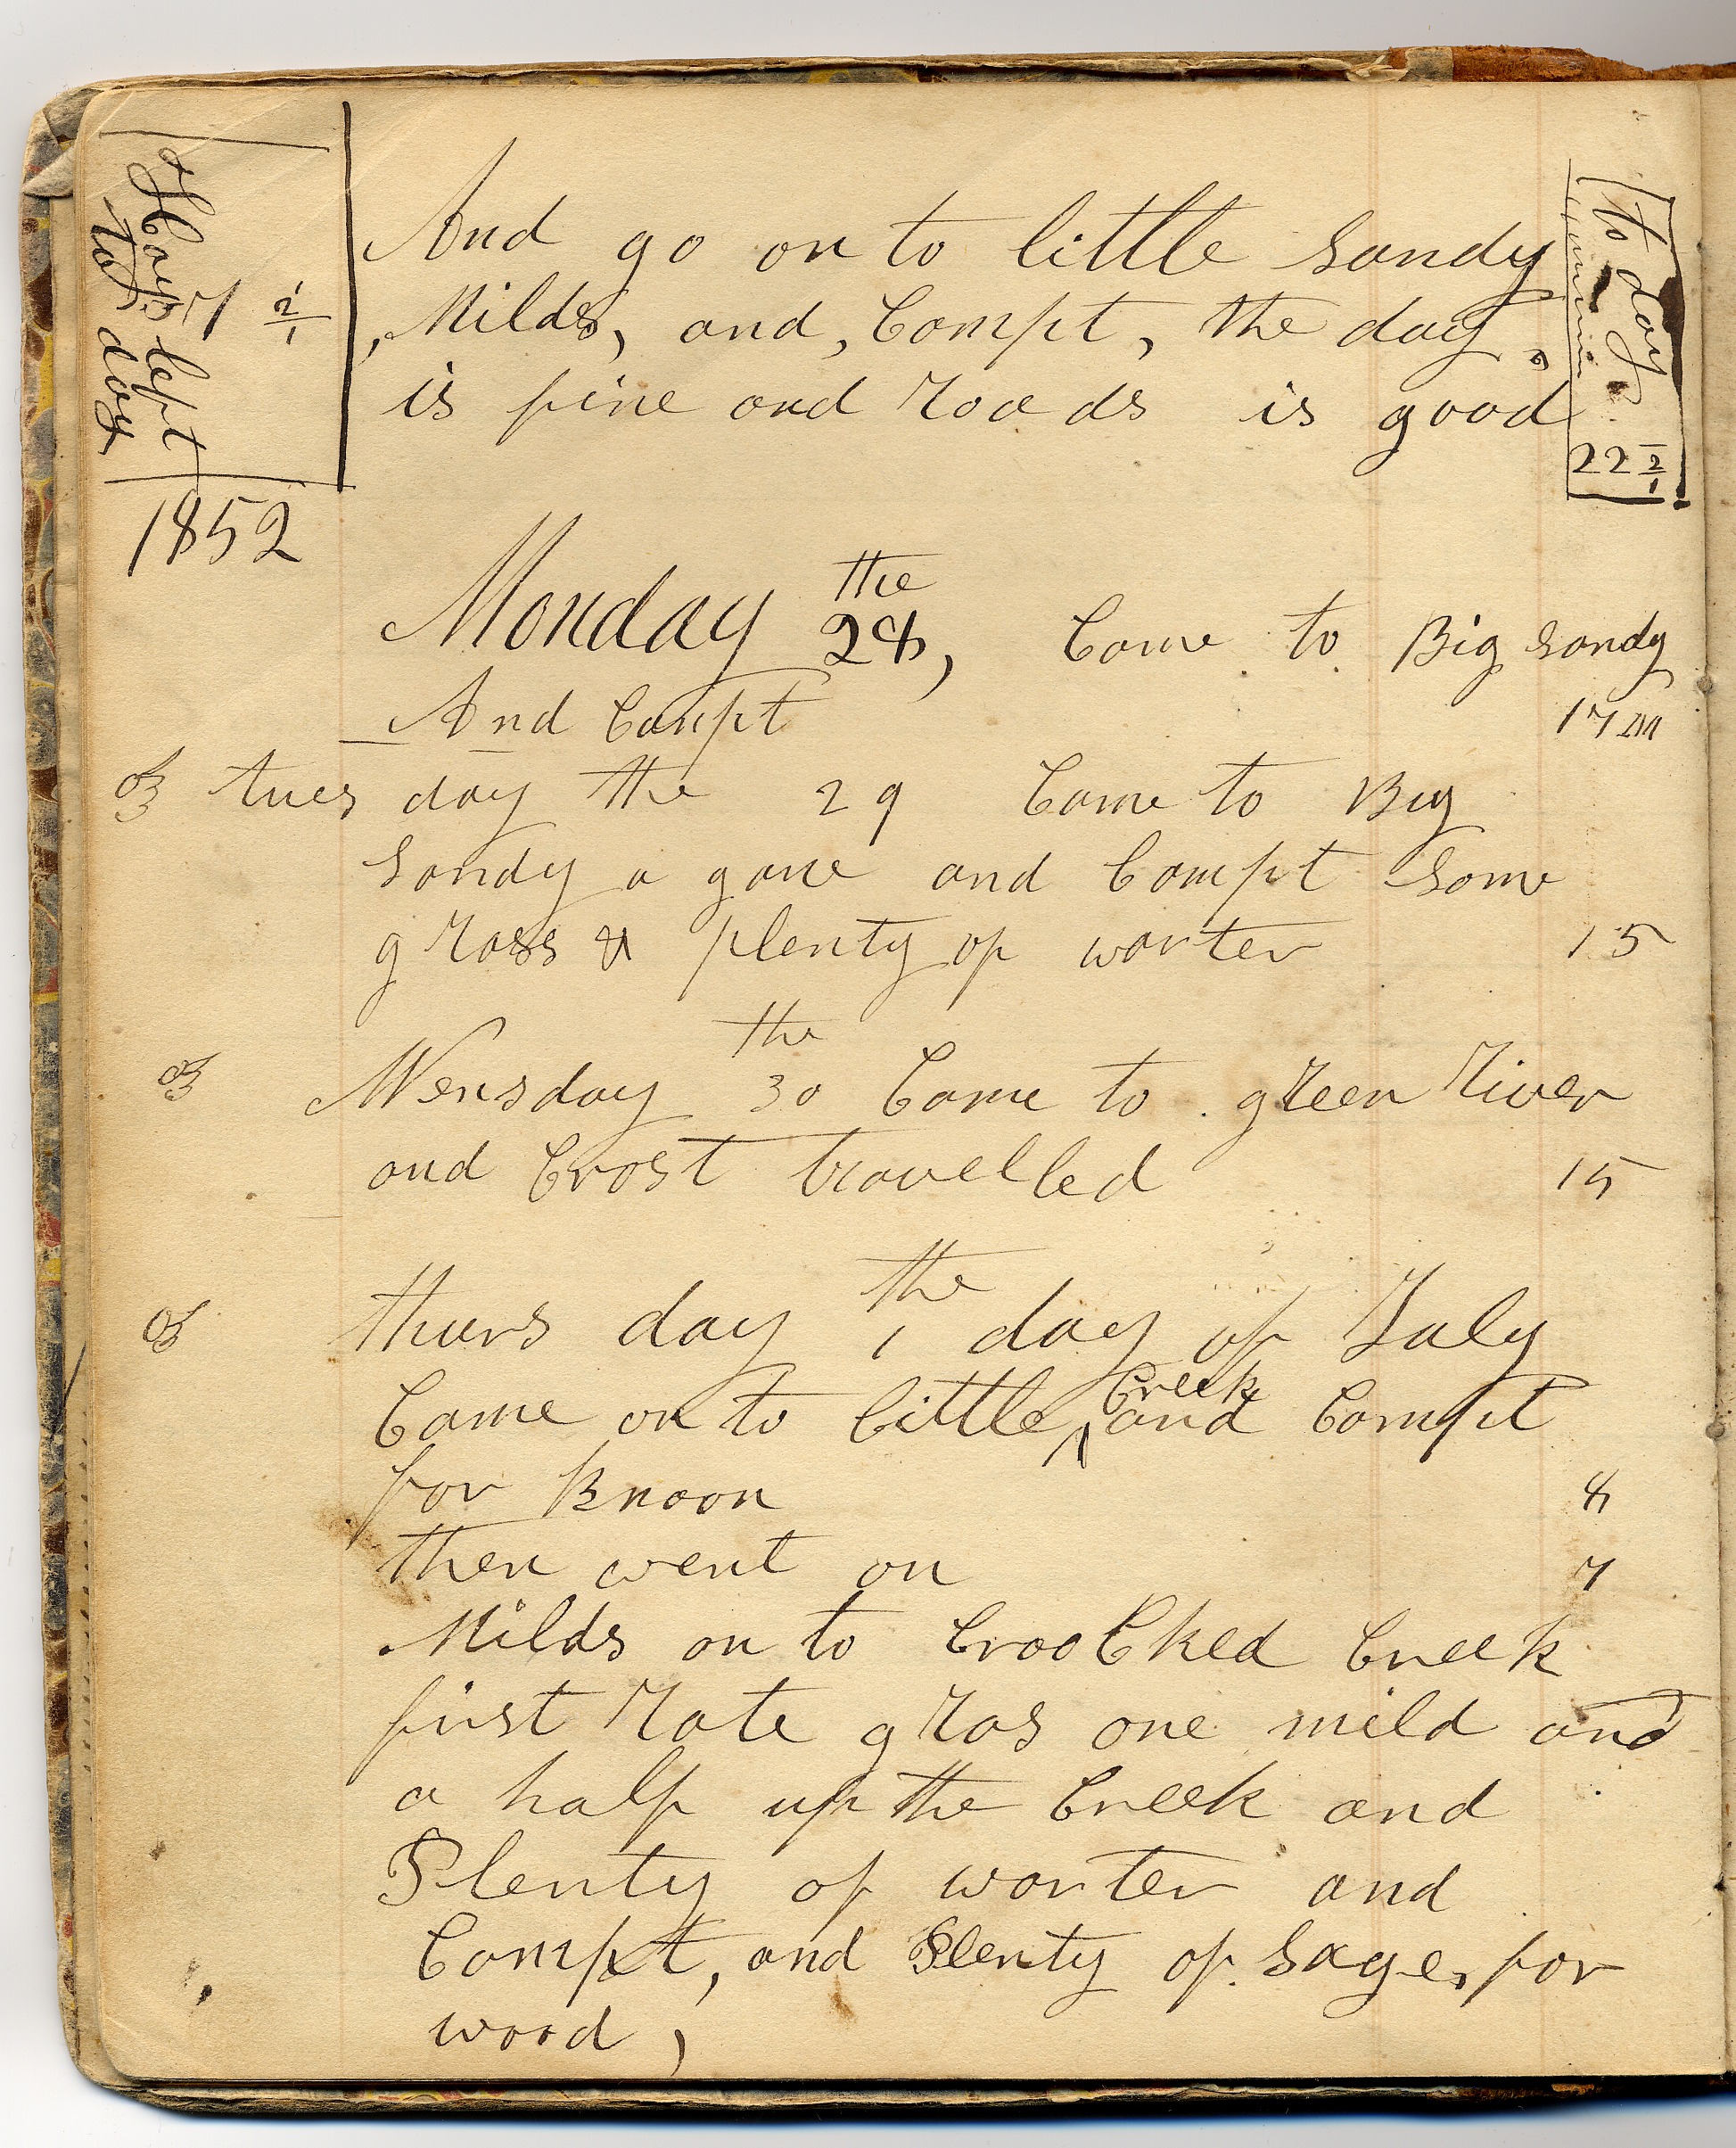 Hays left
to day
7 1/2
And go on to little Sandy
Milds, and, Compt, the day
is fine and roads is good
to day
22 1/2
1852
Monday the 28, Come to Big Sandy
And Campt 17 m
tues day the 29 Come to Big
Sandy a gane and Compt Some
grass & plenty of worter 15
Wensday the 30 Came to green River
and Crost travelled 15
thurs day the 1 day of July
Came on to little Creek and Compt
for Knoon 8
then went on 7
Milds on to Croocked Creek
first rate gras one mild and
a half up the Creek and
Plenty of worter and
Compt, and Plenty of Sage, for
wood,